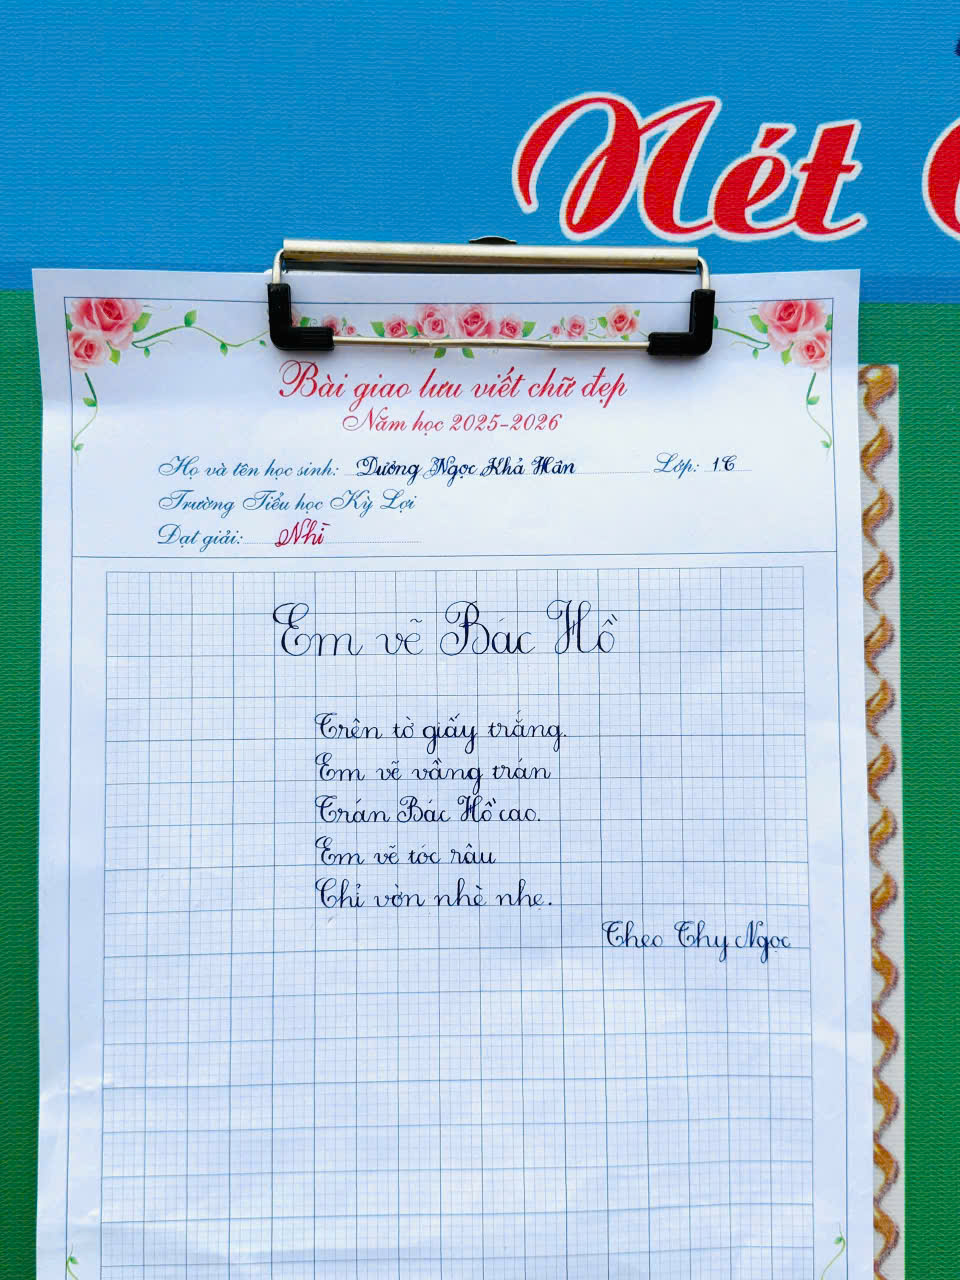 Nét
Bài giao lưu viết chữ đẹp
Năm học 2025-2026
Họ và tên học sinh: Dưởng Ngọc Khả Hân Lớp: 1C
Trường Tiểu học Kỳ Lợi
Đạt giải: Nhì
Em vẽ Bác Hồ
Trên tờ giấy trắng.
Em vẽ vầng trán
Trán Bác Hồ cao.
Em vẽ tóc râu
Chỉ vờn nhè nhẹ.
Theo Thy Ngọc